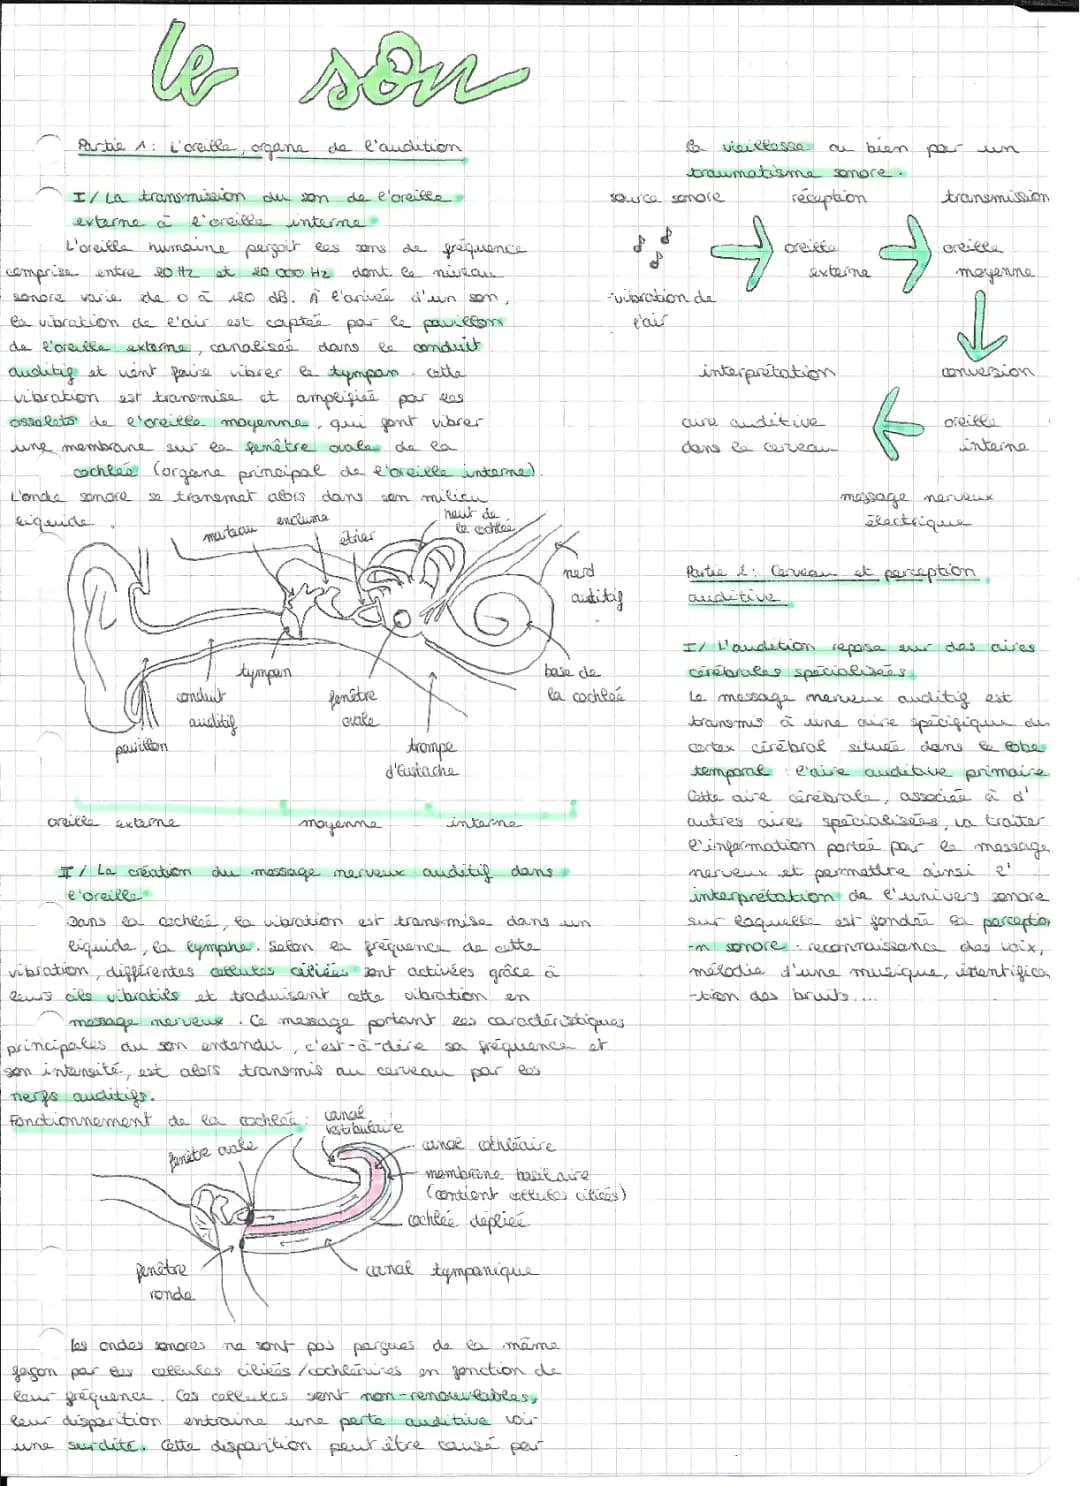 le son
Partie 1 : L'oreille, organe de l'audition
I / La transmission du son de l'oreille
externe à l'oreille interne
L'oreille humaine perçoit les sons de fréquence
comprise entre 20 Hz et 20 000 Hz dont le niveau
sonore varie de 0 à 120 dB. À l'arivée d'un son,
la vibration de l'air est captée par le pavillon
de l'oreille externe, canalisée dans le conduit
auditif et vient faire vibrer le tympan. Cette
vibration est transmise et amplifiée par les
osselets de l'oreille moyenne, qui font vibrer
une membrane sur la fenêtre ovale de la
cochlée (organe principal de l'oreille interne).
L'onde sonore se transmet alors dans son milieu
liquide.
marteau
enclume
étrier
haut de
la cochlée
nerd
auditif
tympan
conduit
auditif
fenêtre
ovale
base de
la cochlée
pavillon
trompe
d'Eustache
oreille externe
moyenne
interne
II / La création du message nerveux auditif dans
l'oreille
Dans la cochlée, la vibration est transmise dans un
liquide, la lymphe. Selon la fréquence de cette
vibration, différentes cellules ciliées sont activées grâce à
leurs cils vibratils et traduisent cette vibration en
message nerveux. Ce message portant les caractéristiques
principales du son entendu, c'est-à-dire sa fréquence et
son intensité, est alors transmis au cerveau par les
nerfs auditifs.
Fonctionnement de la cochlée :
canal
vestibulaire
fenêtre ovale
canal cochléaire
membrane basilaire
(contient cellules ciliées)
cochlée dépliée
fenêtre
ronde
canal tympanique
Les ondes sonores ne sont pas perçues de la même
façon par les cellules ciliées / cochléaires en fonction de
leur fréquence. Ces cellules sont non-renouvlables,
leur disparition entraine une perte auditive voir
une surdité. Cette disparition peut être causé par
la vieillesse ou bien par un
traumatisme sonore.
source sonore
réception
transmission
oreille
externe
oreille
moyenne
vibration de
l'air
interprétation
conversion
aire auditive
dans le cerveau
oreille
interne
message nerveux
électrique
Partie 2 : Cerveau et perception
auditive
I / L'audition repose sur des aires
cérébrales spécialisées
Le message nerveux auditif est
transmis à une aire spécifique du
cortex cérébral située dans le lobe
temporal : l'aire auditive primaire.
Cette aire cérébrale, associée à d'
autres aires spécialisées, va traiter
l'information portée par le message
nerveux et permettre ainsi l'
interprétation de l'univers sonore
sur laquelle est fondée la perceptio
-n sonore : reconnaissance des voix,
mélodie d'une musique, identifica
-tion des bruits....